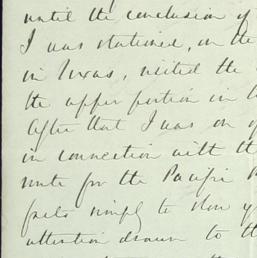 until the conclusion of
I was stationed, on the
in Texas, visited the
the upper portion in
After that I was on
in connection with the
route for the Pacific R
facts simply to show y
attention drawn to th